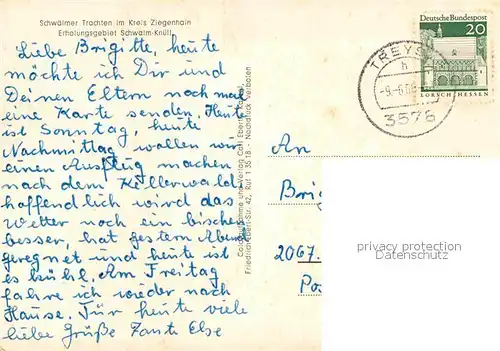 Schwälmer Trachten im Kreis Ziegenhain
Erholungsgebiet Schwalm-Knüll
Liebe Brigitte, heute
möchte ich Dir und
Deinen Eltern noch mal
eine Karte senden. Heute
ist Sonntag, heute
Nachmittag wollen wir
einen Ausflug machen
nach dem Kellerwald
hoffendlich wird das
Wetter noch ein bischen
besser, hat gestern Abend
geregnet und heute ist
es kühl. Am Freitag
fahre ich wieder nach
Hause. Für heute viele
liebe Grüße Tante Else
Friedrich-Ebert-Str. 42, Ruf 1 35 18 - Nachdruck verboten
Deutsche Bundespost
20
LORSCH/HESSEN
TREYSA
h
-9.-6.
3578
An
Bri
2067
Po
privacy protection
Datenschutz